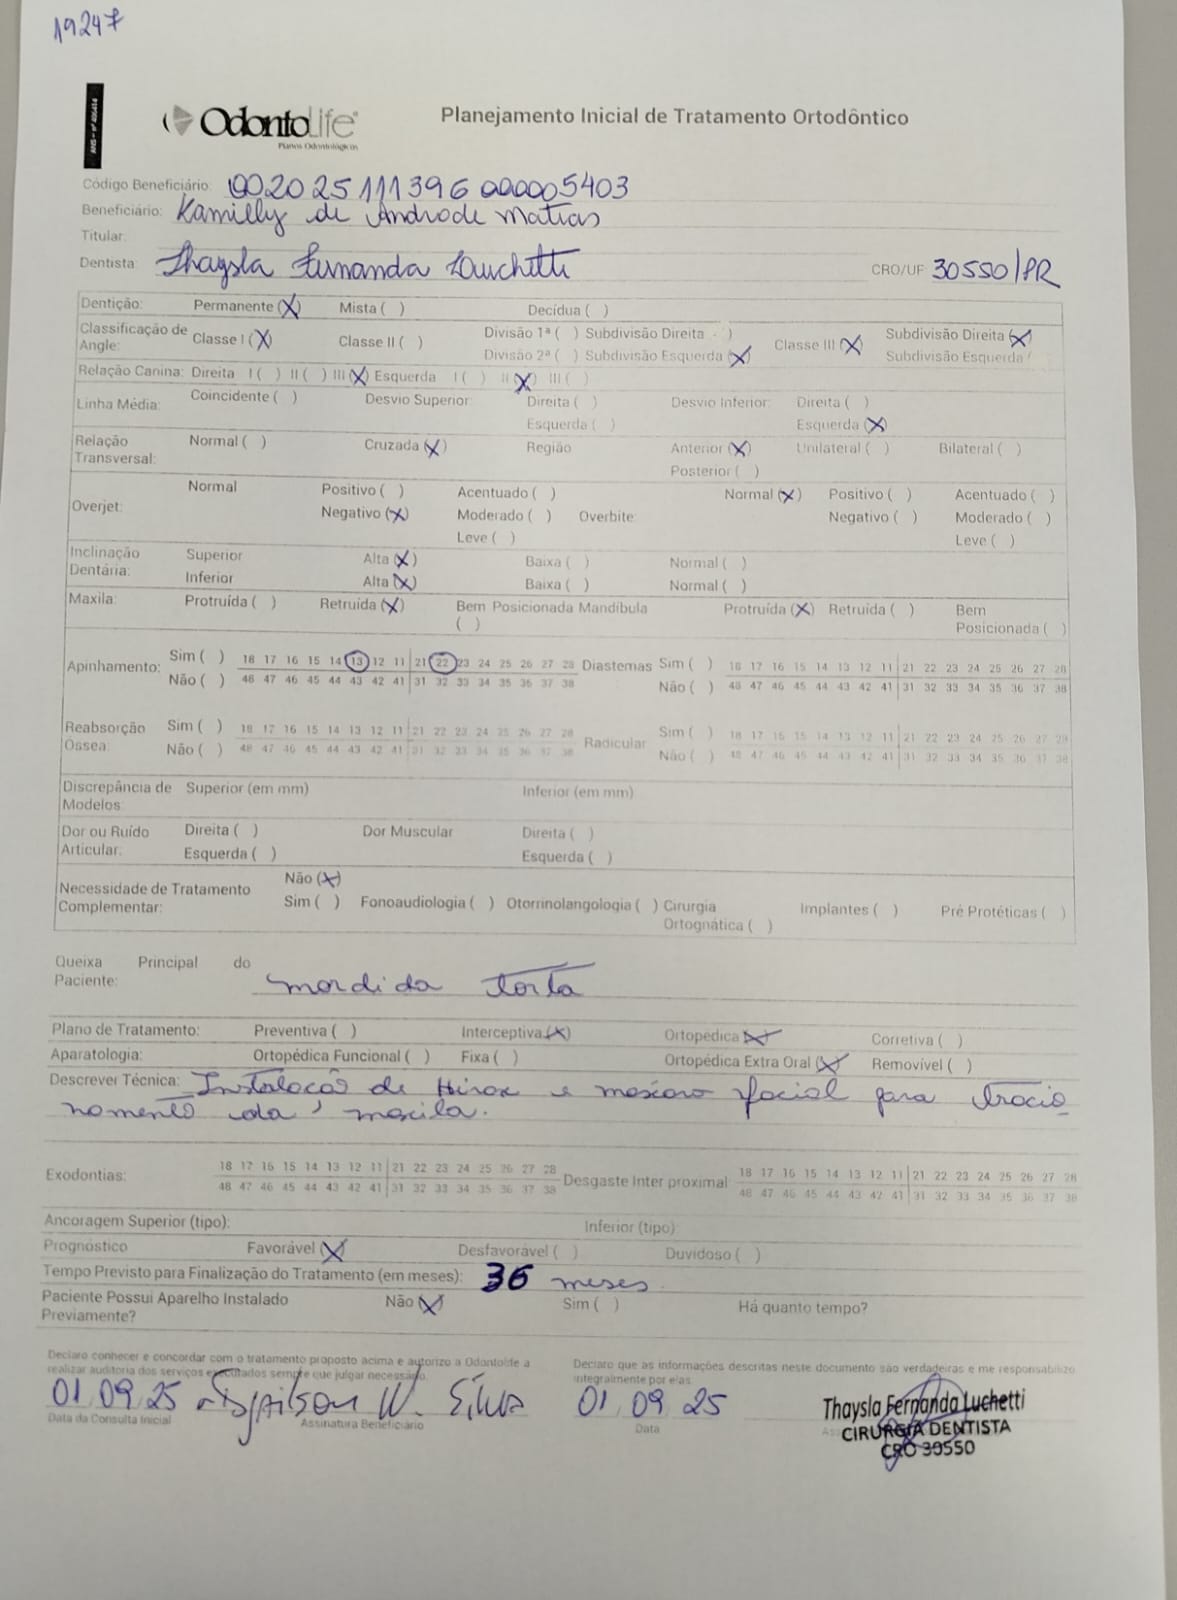 19247
ANS - nº 406414
OdontoLife
Planos Odontológicos
Planejamento Inicial de Tratamento Ortodôntico
Código Beneficiário: 002025111396000005403
Beneficiário: Kamilly de Andrade Matias
Titular:
Dentista: Thaysla Fernanda Luchetti CRO/UF 30550/PR
Dentição: Permanente (X) Mista ( ) Decídua ( )
Classificação de Angle: Classe I (X) Classe II ( ) Divisão 1ª ( ) Subdivisão Direita ( ) Classe III (X) Subdivisão Direita (X)
Divisão 2ª ( ) Subdivisão Esquerda (X) Subdivisão Esquerda (
Relação Canina: Direita I ( ) II ( ) III (X) Esquerda I ( ) II (X) III ( )
Linha Média: Coincidente ( ) Desvio Superior: Direita ( ) Desvio Inferior: Direita ( )
Esquerda ( ) Esquerda (X)
Relação Transversal: Normal ( ) Cruzada (X) Região Anterior (X) Unilateral ( ) Bilateral ( )
Posterior ( )
Overjet: Normal Positivo ( ) Acentuado ( ) Normal (X) Positivo ( ) Acentuado ( )
Negativo (X) Moderado ( ) Overbite: Negativo ( ) Moderado ( )
Leve ( ) Leve ( )
Inclinação Dentária: Superior Alta (X) Baixa ( ) Normal ( )
Inferior Alta (X) Baixa ( ) Normal ( )
Maxila: Protruída ( ) Retruída (X) Bem Posicionada ( ) Mandíbula Protruída (X) Retruída ( ) Bem Posicionada ( )
Apinhamento: Sim ( ) 18 17 16 15 14 13 12 11 21 22 23 24 25 26 27 28 Diastemas Sim ( ) 18 17 16 15 14 13 12 11 21 22 23 24 25 26 27 28
Não ( ) 48 47 46 45 44 43 42 41 31 32 33 34 35 36 37 38 Não ( ) 48 47 46 45 44 43 42 41 31 32 33 34 35 36 37 38
Reabsorção Óssea: Sim ( ) 18 17 16 15 14 13 12 11 21 22 23 24 25 26 27 28 Radicular Sim ( ) 18 17 16 15 14 13 12 11 21 22 23 24 25 26 27 28
Não ( ) 48 47 46 45 44 43 42 41 31 32 33 34 35 36 37 38 Não ( ) 48 47 46 45 44 43 42 41 31 32 33 34 35 36 37 38
Discrepância de Modelos: Superior (em mm) Inferior (em mm)
Dor ou Ruído Articular: Direita ( ) Dor Muscular Direita ( )
Esquerda ( ) Esquerda ( )
Necessidade de Tratamento Complementar: Não (X)
Sim ( ) Fonoaudiologia ( ) Otorrinolangologia ( ) Cirurgia Ortognática ( ) Implantes ( ) Pré Protéticas ( )
Queixa Principal do Paciente: mordida torta
Plano de Tratamento: Preventiva ( ) Interceptiva (X) Ortopédica (X) Corretiva ( )
Aparatologia: Ortopédica Funcional ( ) Fixa ( ) Ortopédica Extra Oral (X) Removível ( )
Descrever Técnica: Instalacão de Hirax e mascara facial para tracio
namento da maxila.
Exodontias: 18 17 16 15 14 13 12 11 21 22 23 24 25 26 27 28 Desgaste Inter proximal 18 17 16 15 14 13 12 11 21 22 23 24 25 26 27 28
48 47 46 45 44 43 42 41 31 32 33 34 35 36 37 38 48 47 46 45 44 43 42 41 31 32 33 34 35 36 37 38
Ancoragem Superior (tipo): Inferior (tipo):
Prognóstico Favorável (X) Desfavorável ( ) Duvidoso ( )
Tempo Previsto para Finalização do Tratamento (em meses): 36 meses
Paciente Possui Aparelho Instalado Previamente? Não (X) Sim ( ) Há quanto tempo?
Declaro conhecer e concordar com o tratamento proposto acima e autorizo a Odontolife a
realizar auditoria dos serviços executados sempre que julgar necessário.
Declaro que as informações descritas neste documento são verdadeiras e me responsabilizo
integralmente por elas.
01 09 25 W. Silva 01 09 25
Data da Consulta Inicial Assinatura Beneficiário Data
Thaysla Fernanda Luchetti
CIRURGIÃ DENTISTA
CRO 30550